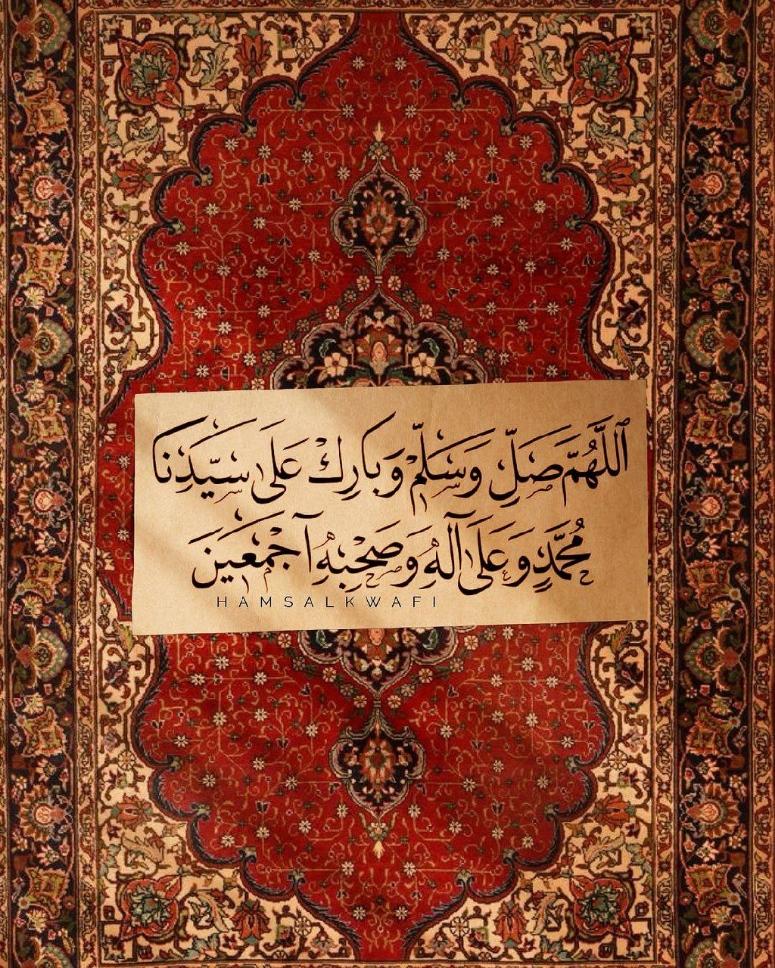 ٱللَّهُمَّ صَلِّ وَسَلِّمْ وَبَارِكْ عَلَى سَيِّدِنَا
مُحَمَّدٍ وَعَلَى آلِهِ وَصَحْبِهِ آجْمَعِينَ
HAMSALKWAFI